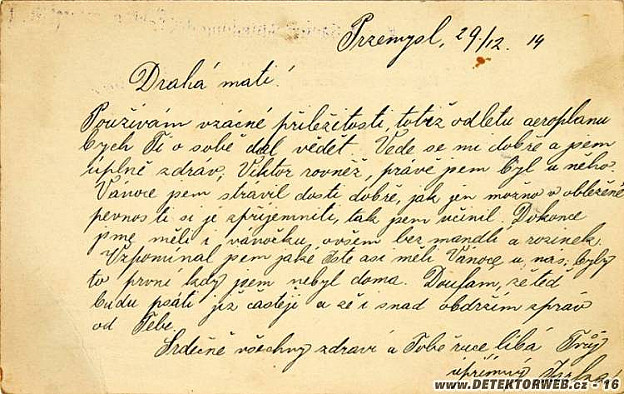 Przemysl, 29./12. 14
Drahá mati!
Použivám vzácné příležitosti, totiž odletu aeroplanu
bych Ti o sobě dal vědět. Vede se mi dobře a jsem
úplně zdráv, Viktor rovněž, právě jsem byl u něho.
Vánoce jsem strávil dosti dobře, jak jen možno v obležené
pevnosti si je zpříjemniti, tak jsem učinil. Dokonce
jsme měli i vánočku, ovšem bez mandlí a rozinek.
Vzpomínal jsem jaké jste asi měli Vánoce u nás, byly
to první kdy jsem nebyl doma. Doufám, že teď
budu psáti již častěji a že i snad obdržím zpráv
od Tebe.
Srdečně všechny zdraví a Tobě ruce líbá Tvůj
upřímný
www.DETEKTORWEB.cz - 16